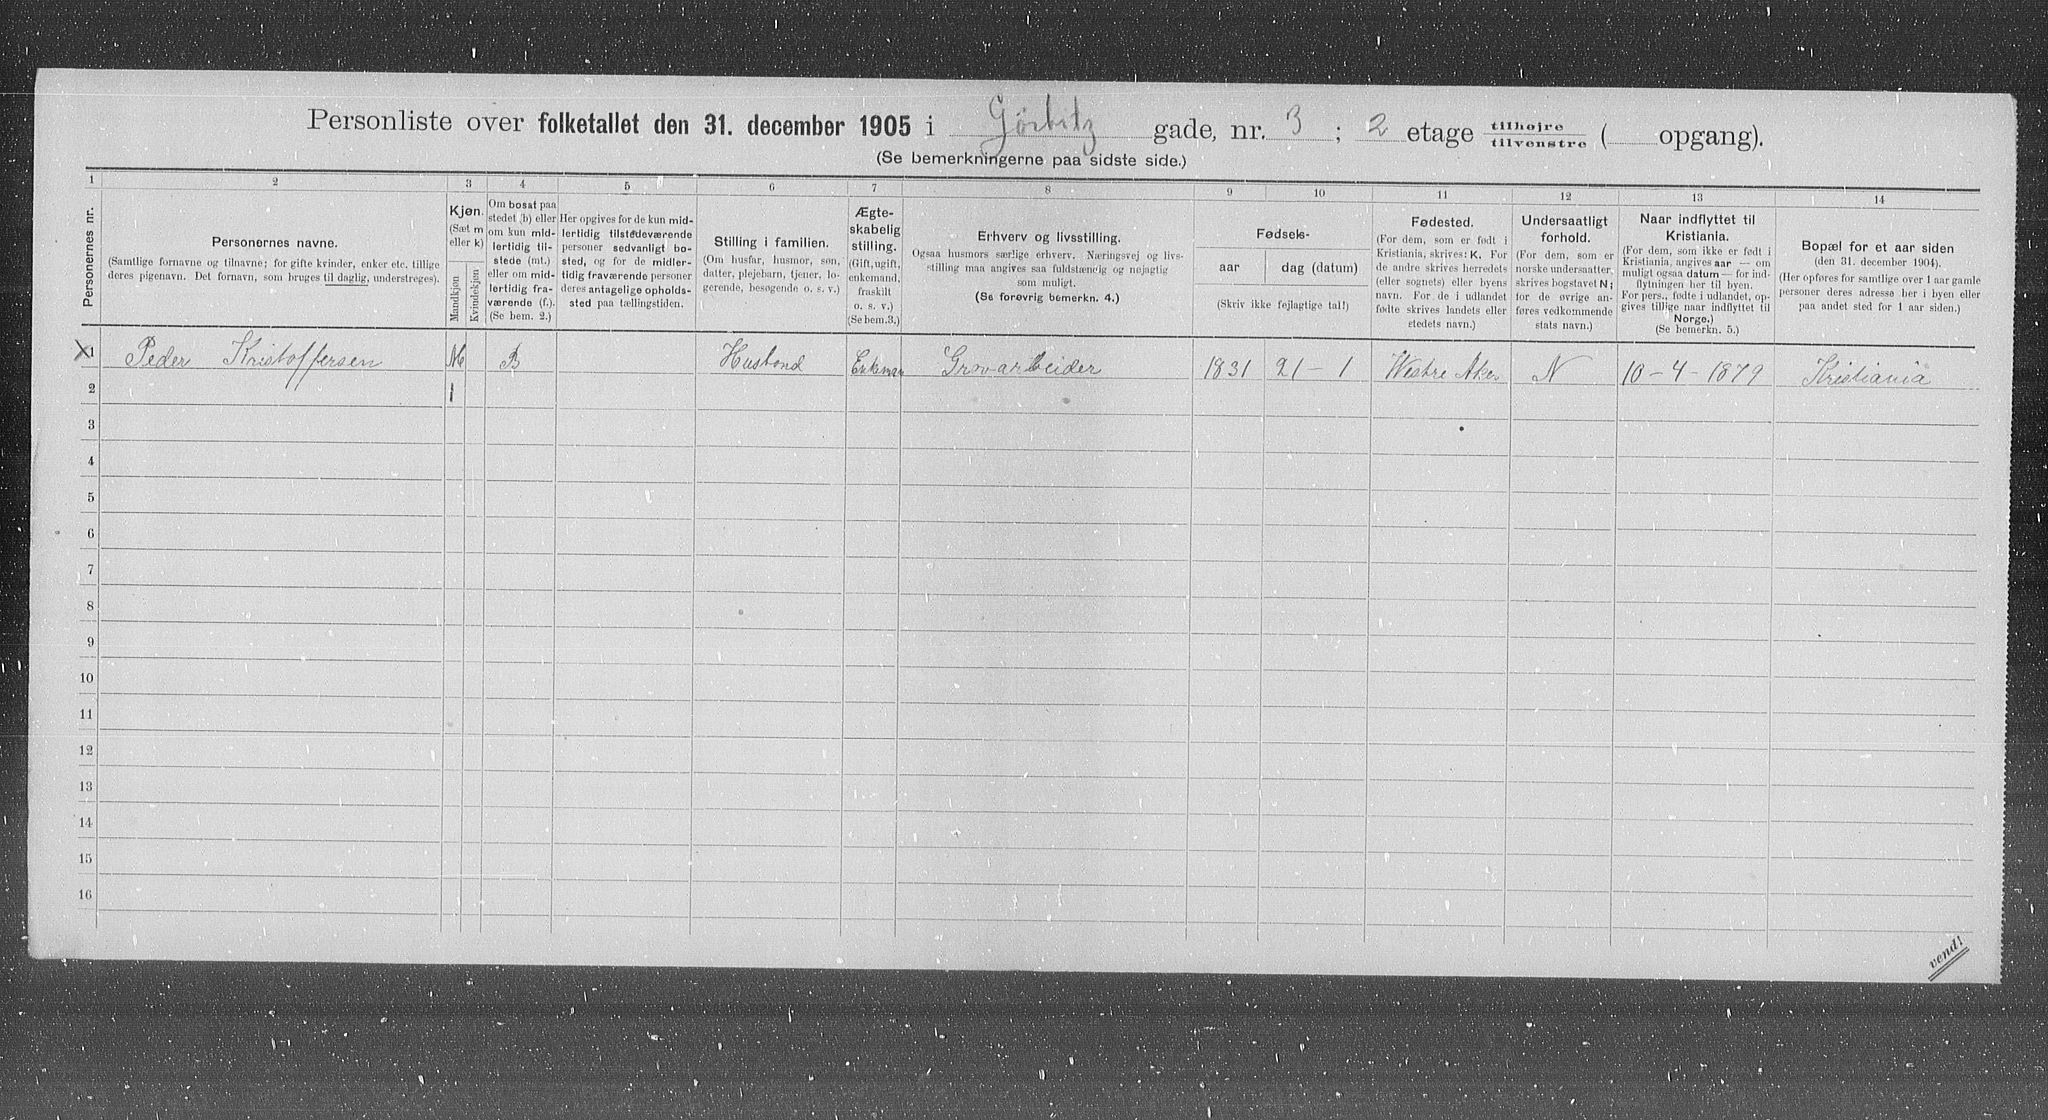 Personliste over folketallet den 31. december 1905 i Gørbitz gade, nr. 3 ; 2 etage tilhøjre tilvenstre ( opgang).
(Se bemerkningerne paa sidste side.)
1 2 3 4 5 6 7 8 9 10 11 12 13 14
Personernes nr.
Personernes navne.
(Samtlige fornavne og tilnavne; for gifte kvinder, enker etc. tillige
deres pigenavn. Det fornavn, som bruges til daglig, understreges).
Kjøn.
(Sæt m
eller k)
Mandkjøn
Kvindekjøn
Om bosat paa
stedet (b) eller
om kun mid-
lertidig til-
stede (mt.)
eller om mid-
lertidig fra-
værende (f.).
(Se bem. 2.)
Her opgives for de kun mid-
lertidig tilstedeværende
personer sedvanligt bo-
sted, og for de midler-
tidig fraværende personer
deres antagelige opholds-
sted paa tællingstiden.
Stilling i familien.
(Om husfar, husmor, søn,
datter, plejebarn, tjener, lo-
gerende, besøgende o. s. v.)
Ægte-
skabelig
stilling.
(Gift, ugift,
enkemand,
fraskilt
o. s. v.)
(Se bem.3.)
Erhverv og livsstilling.
Ogsaa husmors særlige erhverv. Næringsvej og livs-
stilling maa angives saa fuldstændig og nøjagtig
som muligt.
(Se forøvrig bemerkn. 4.)
Fødsels-
aar
dag (datum)
(Skriv ikke fejlagtige tal!)
Fødested.
(For dem, som er født i
Kristiania, skrives: K. For
de andre skrives herredets
(eller sognets) eller byens
navn. For de i udlandet
fødte skrives landets eller
stedets navn.)
Undersaatligt
forhold.
(For dem, som er
norske undersaatter,
skrives bogstavet N;
for de øvrige an-
føres vedkommende
stats navn.)
Naar indflyttet til
Kristiania.
(For dem, som ikke er født i
Kristiania, angives aar — om
muligt ogsaa datum — for ind-
flytningen her til byen.
For pers., fødte i udlandet, op-
gives tillige naar indflyttet til
Norge.)
(Se bemerkn. 5.)
Bopæl for et aar siden
(den 31. december 1904).
(Her opføres for samtlige over 1 aar gamle
personer deres adresse her i byen eller
paa andet sted for 1 aar siden.)
1 Peder Kristoffersen M B Husbond Enkeman Grovarbeider 1831 21-1 Westre Aker N 10-4-1879 Kristiania
2 1
3
4
5
6
7
8
9
10
11
12
13
14
15
16
vend!